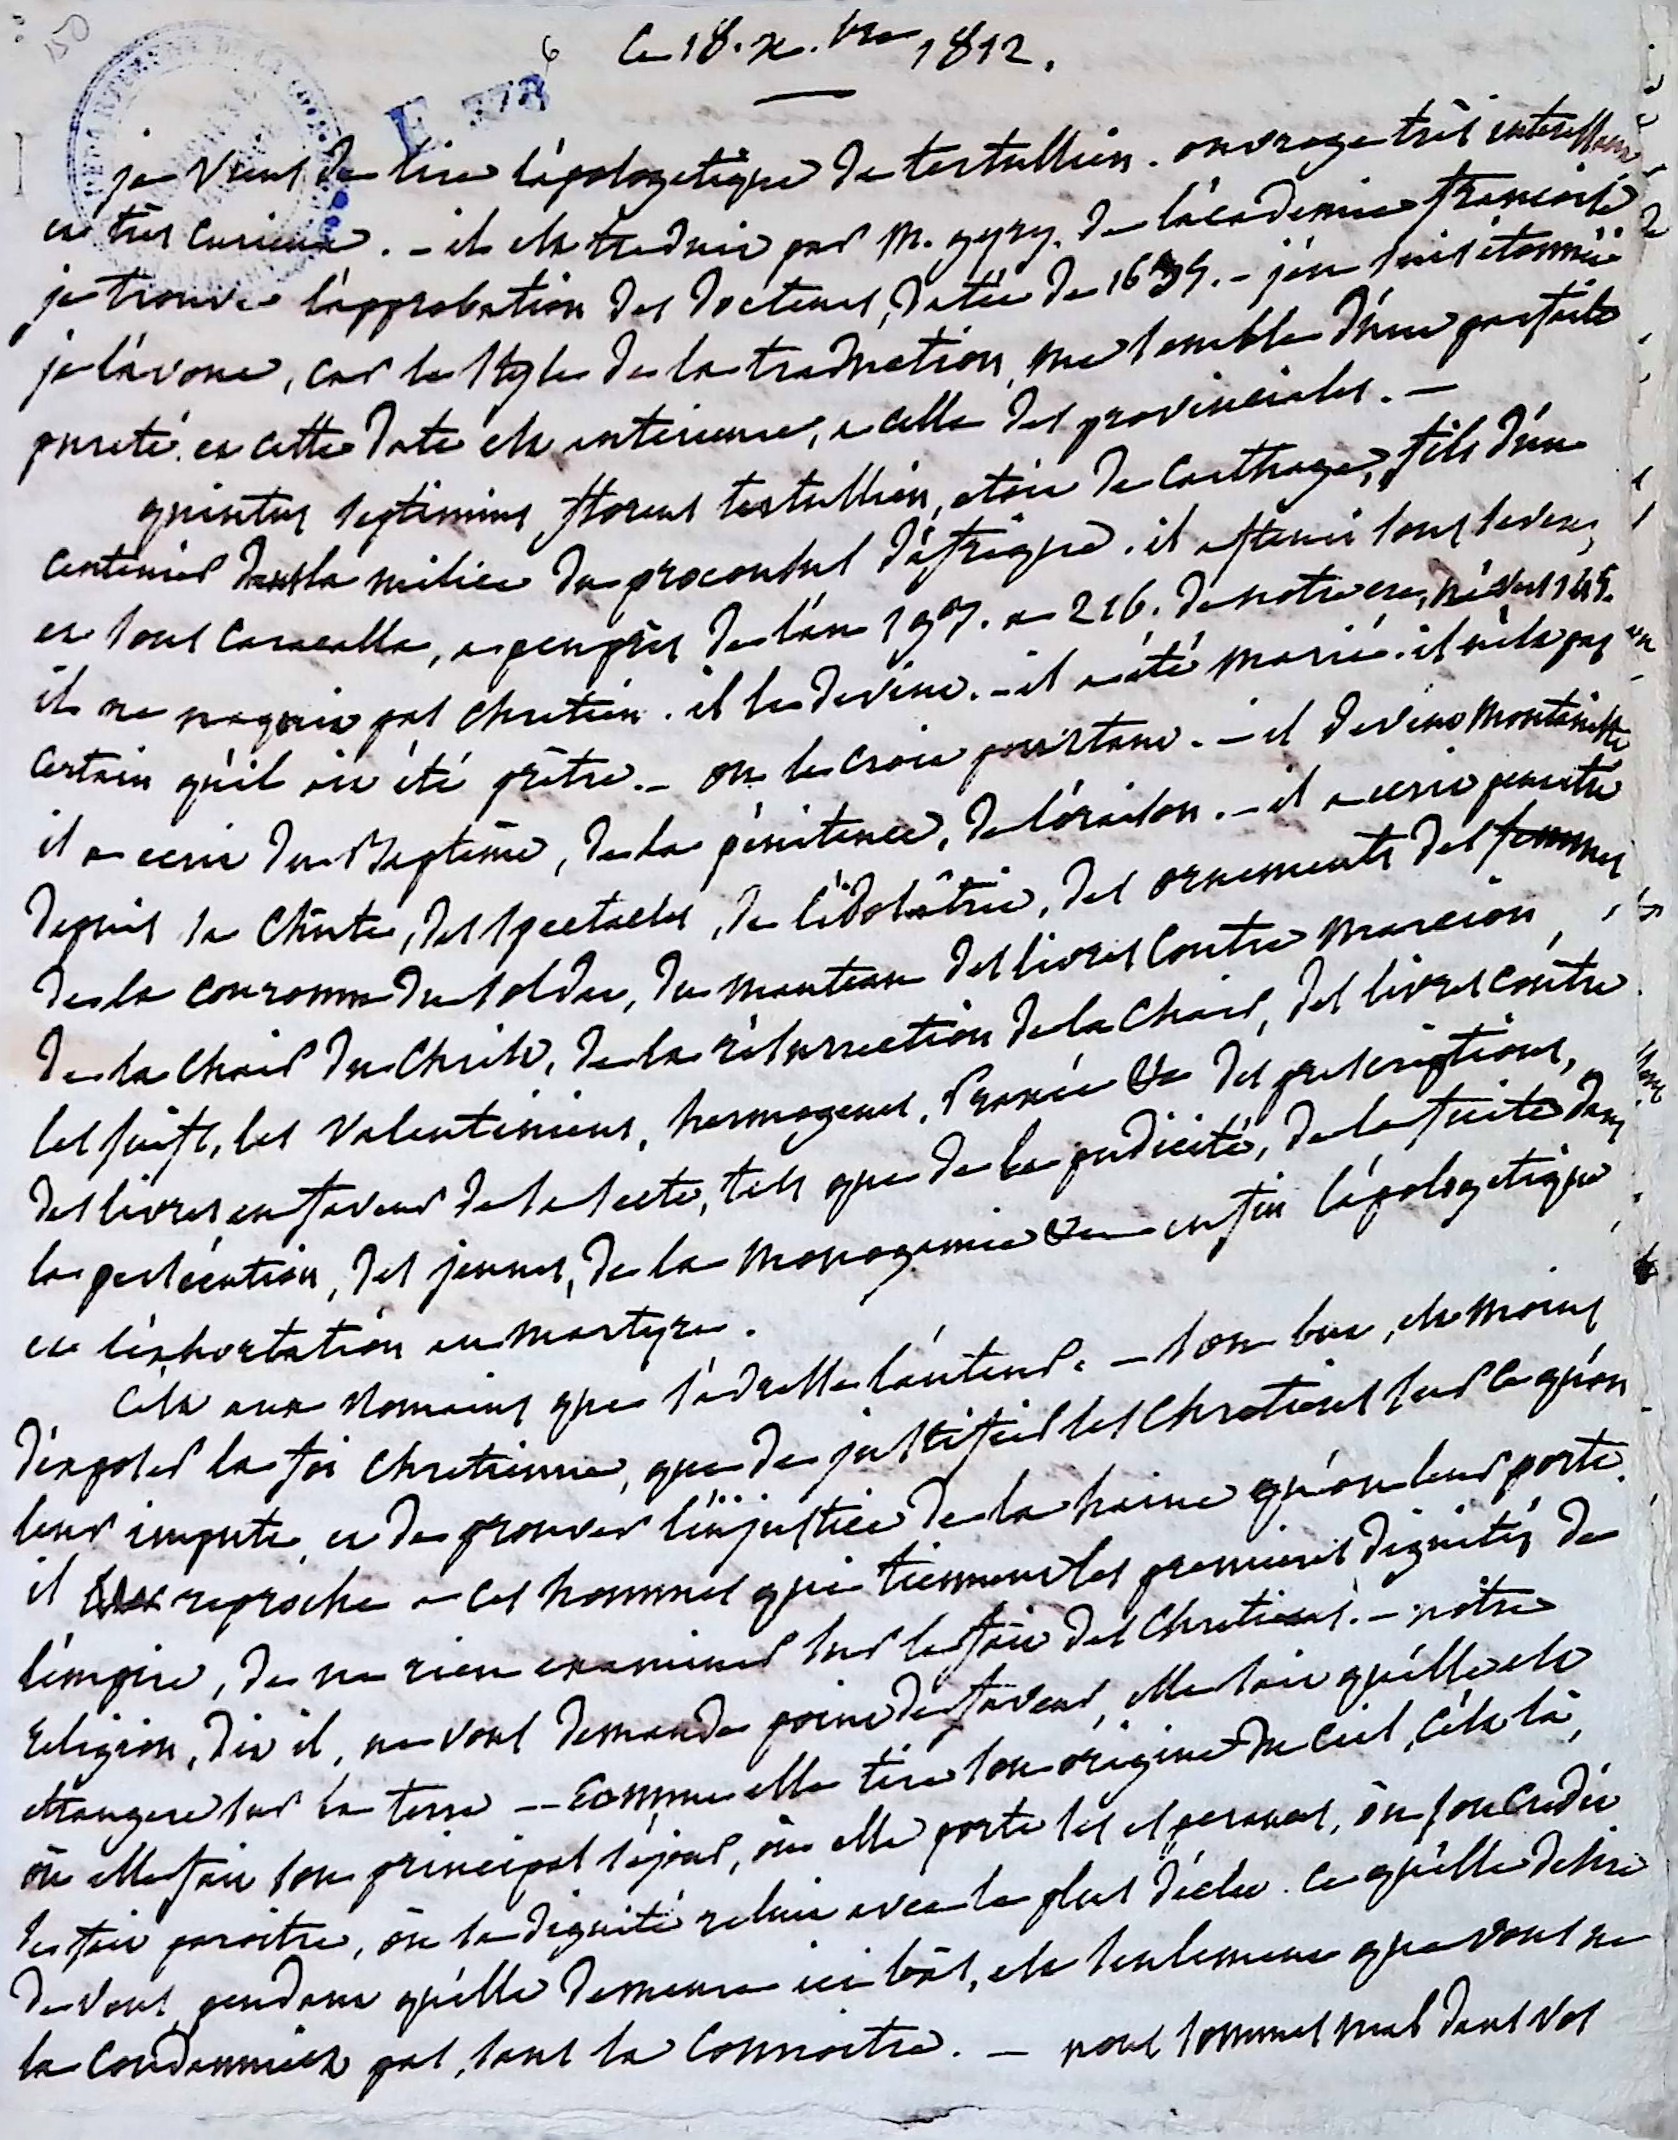 6
Ce 18. x.bre 1812.
E 378
je viens de lire l'apologetique de tertullien. ouvrage très interessant
et très curieux. - il est traduit par M. gyry. de l'academie françoise
je trouve l'approbation des docteurs, datée de 16 . - j'en suis étonnée
je l'avoue, car le style de la traduction, me semble d'une parfaite
pureté. et cette date est anterieure, a celle des provinciales. -
quintus septimius florens tertullien, etoit de Carthage, fils d'un
centenier dans la milice du proconsul d'afrique. il a fleuri sous severe,
et sous Caracalla, a peu près de l'an 197. a 216. de notre ere,
il ne naquit pas chretien. il le devint. - il a été marié. il n'est pas
certain qu'il ait été prêtre. - on le croit pourtant. - il devint montaniste
il a ecrit du Baptême, de la pénitence, de l'oraison. - il a ecrit peutetre
depuis sa chûte, des spectacles, de l'idolâtrie, des ornements des femmes
de la couronne du soldat, du manteau des livres contre marcion,
de la chair du christ, de la résurrection de la chair, des livres contre
les juifs, les valentiniens, hermogenes, Praxée &c des prescriptions,
des livres en faveur de sa secte, tels que de la pudicité, de la fuite dans
la persécution, des jeunes, de la monogamie &c enfin l'apologetique
et l'exhortation au martyre.
C'est aux Romains que s'adresse l'auteur. - son but, est moins
d'exposer la foi chretienne, que de justifier les chretiens sur ce qu'on
leur impute, et de prouver l'injustice de la haine qu'on leur porte.
il reproche a ces hommes qui tiennent les premieres dignités de
l'empire, de ne rien examiner sur le fait des chretiens. - notre
religion, dit il, ne vous demande point de faveur, elle sait qu'elle est
etrangere sur la terre -- comme elle tire son origine du ciel, c'est là,
où elle fait son principal séjour, où elle porte ses esperances, où son credit
se fait paroitre, où sa dignité reluit avec le plus d'éclat. ce qu'elle desire
de vous, pendant qu'elle demeure ici bas, est seulement que vous ne
la condamniez pas, sans la connoitre. - nous sommes nés dans vos